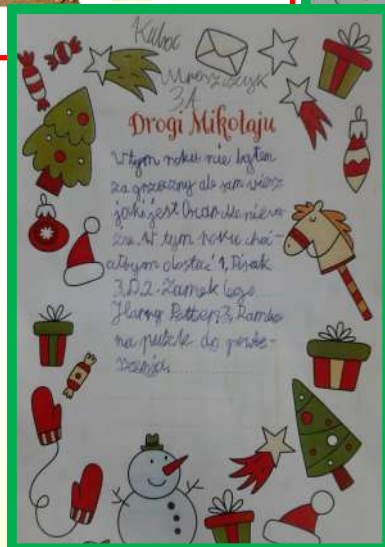 Kuba
3A
Drogi Mikołaju
W tym roku nie byłem
za grzeczny ale sam wiesz
jaki jest Oscar dla niewo
W tym roku chci
ałbym dostać 1, Pisak
3,D.2. Zamek Lego
Harry Potter, 3, Ramka
na do powie-
szenia.